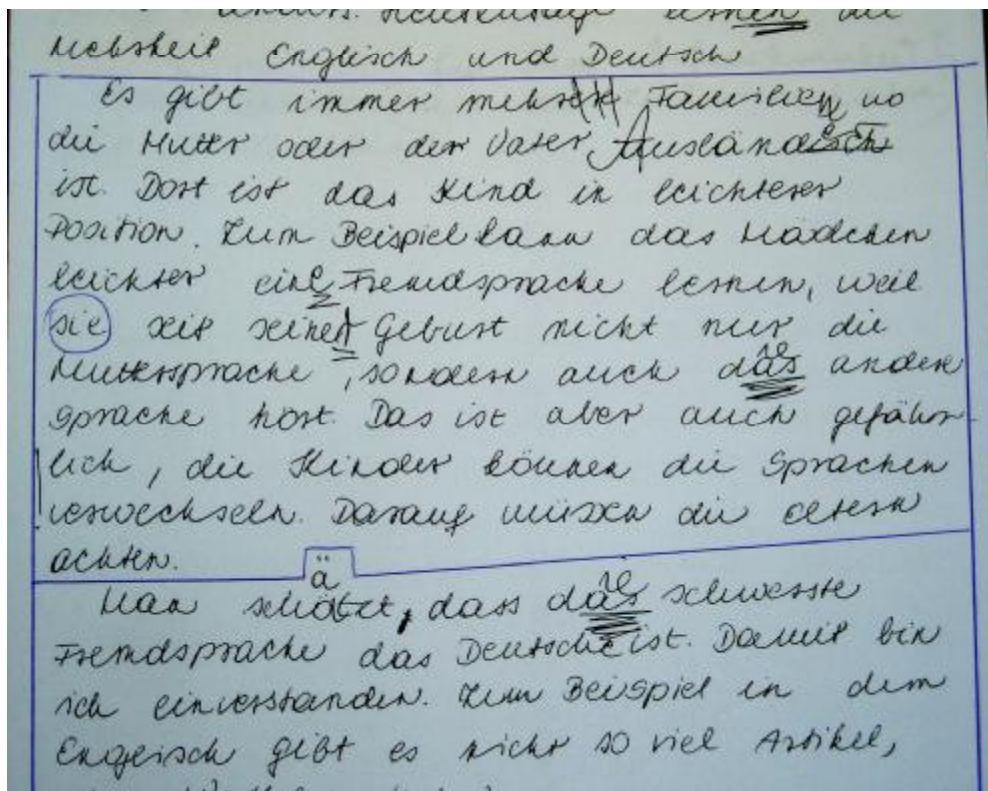 lernen die
Mehrheit Englisch und Deutsch
Es gibt immer mehr Familien, wo
die Mutter oder der Vater Ausländisch
ist. Dort ist das Kind in leichterer
Position. Zum Beispiel kann das Mädchen
leichter eine Fremdsprache lernen, weil
sie seit seiner Geburt nicht nur die
Muttersprache, sondern auch das andere
Sprache hört. Das ist aber auch gefähr-
lich, die Kinder können die Sprachen
verwechseln. Darauf müssen die Eltern
achten.
ä
Man schätzt, dass das schwerste
Fremdsprache das Deutsche ist. Damit bin
ich einverstanden. Zum Beispiel in dem
Englisch gibt es nicht so viel Artikel,